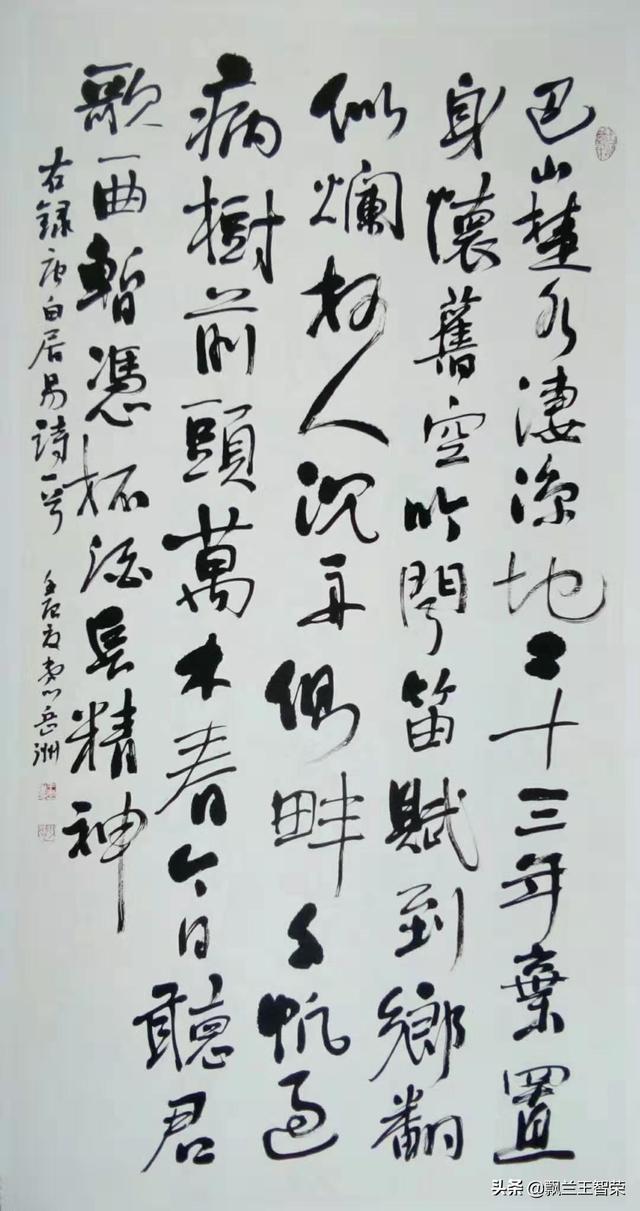 巴山楚水淒涼地二十三年棄置
身懷舊空吟聞笛賦到鄉翻
似爛柯人沉舟側畔千帆過
病樹前頭萬木春今日聽君
歌一曲暫憑杯酒長精神
右録唐白居易詩一首 岳洲
头条 @飘兰王智荣